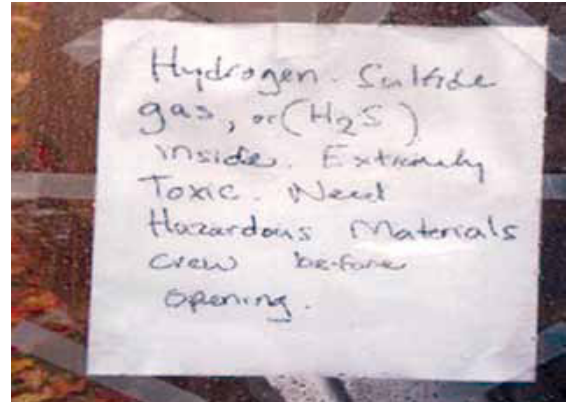 Hydrogen Sulfide
gas, or (H2S)
inside. Extremely
Toxic. Need
Hazardous Materials
crew before
opening.